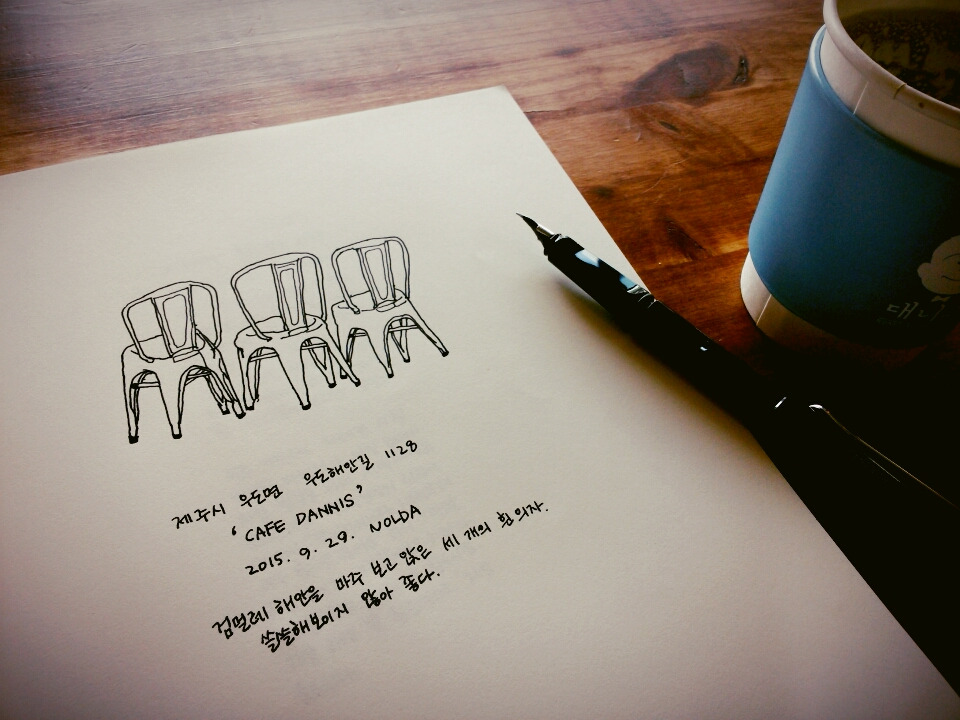 제주시 우도면 우도해안길 1128
'CAFE DANNIS'
2015. 9. 29. NOLDA
검멀레 해안을 마주 보고 앉은 세 개의 빈 의자.
쓸쓸해보이지 않아 좋다.
대니